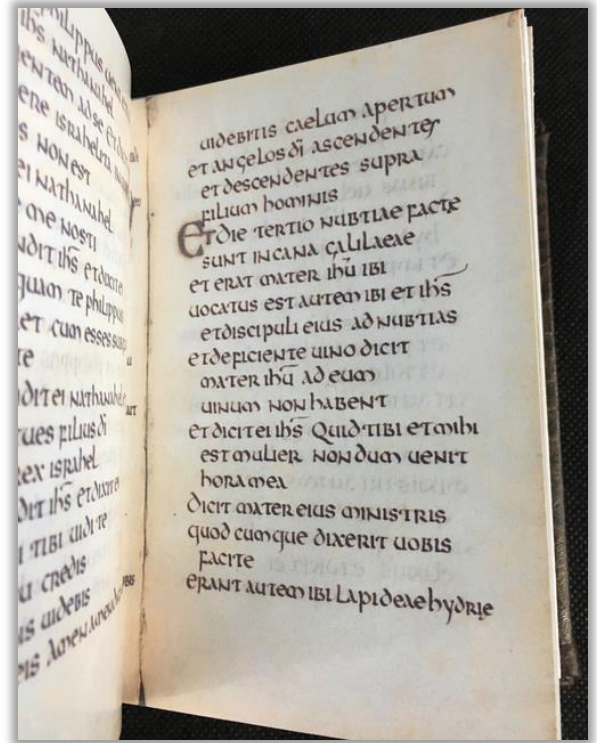 hilippus
ihs nathanahel
entem ad se et
ere israhelita
s non est
ei nathanahel
e me nosti
ndit ihs et dixit ei
quam te philippus
et cum esses sub
te
dit ei nathanahel
tu es filius di
rex israhel
dit ihs et dixit ei
tibi uidi te
credis
s uidebis
is amen amen
uidebitis caelum apertum
et angelos di ascendentes
et descendentes supra
filium hominis
Et die tertio nubtiae factae
sunt in cana galilaeae
et erat mater ihu ibi
uocatus est autem ibi et ihs
et discipuli eius ad nubtias
et deficiente uino dicit
mater ihu ad eum
uinum non habent
et dicit ei ihs Quid tibi et mihi
est mulier nondum uenit
hora mea
dicit mater eius ministris
quodcumque dixerit uobis
facite
erant autem ibi lapideae hydriae